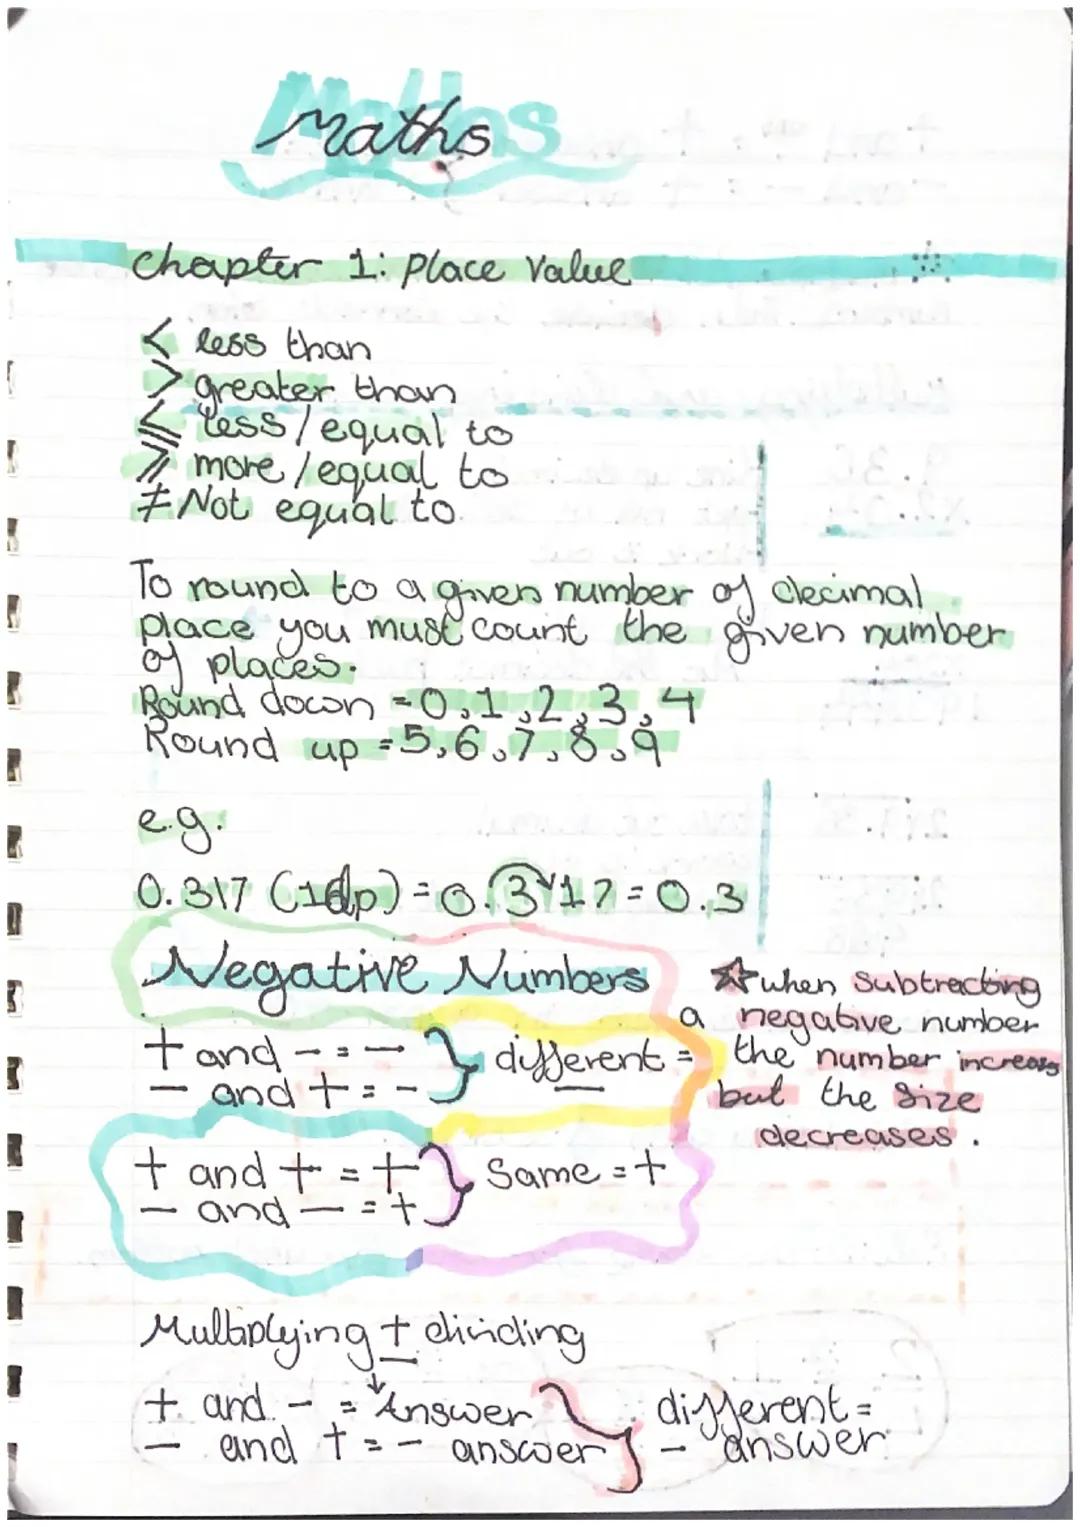 Maths
Maths
Chapter 1: Place Value
< less than
> greater than
≤ less/equal to
≥ more/equal to
≠ Not equal to
To round to a given number of decimal
place you must count the given number
of places.
Round down = 0,1,2,3,4
Round up = 5,6,7,8,9
e.g.
0.317 (1dp) = 0.317 = 0.3
Negative Numbers
+ and - = -
- and + = -
different = -
+ and + = +
- and - = +
Same = +
☆ when subtracting
a negative number
the number increases
but the size
decreases.
Multiplying + dividing
+ and - = - Answer
- and + = - answer
different =
- answer